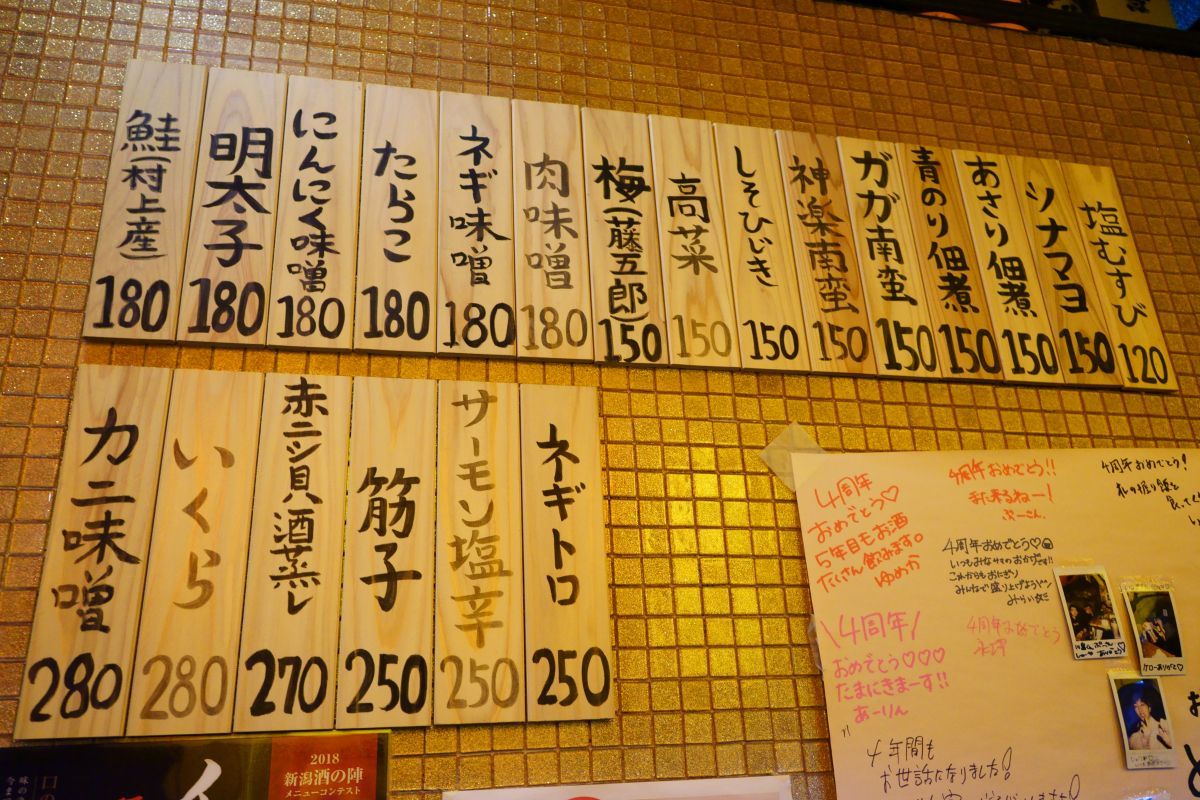 塩むすび
120
ツナマヨ
150
あさり佃煮
150
青のり佃煮
150
ガガ南蛮
150
神楽南蛮
150
しそひじき
150
高菜
150
梅(藤五郎)
150
肉味噌
180
ネギ味噌
180
たらこ
180
にんにく味噌
180
明太子
180
鮭(村上産)
180
ネギトロ
250
サーモン塩辛
250
筋子
250
赤ニシ貝酒蒸し
270
いくら
280
カニ味噌
280
4周年
おめでとう♡
5年目もお酒
たくさん飲みます。
ゆめか
4周年おめでとう!!
また来るねー!
ぶーさん
4周年おめでとう!
4周年おめでとう♡
いつもみなサマのおかげです!!
これからもおにぎり
みんなで盛り上げようゼン
4周年おめでとう
\4周年/
おめでとう♡♡♡
たまにきまーす!!
あーりん
4年間も
お世話になりました!
2018
新潟酒の陣
メニューコンテスト